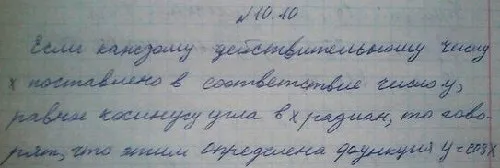 №10.10
Если каждому действительному числу
x поставлено в соответствие число y,
равное косинусу угла в x радиан, то гово-
рят, что этим определена функция y=cosx